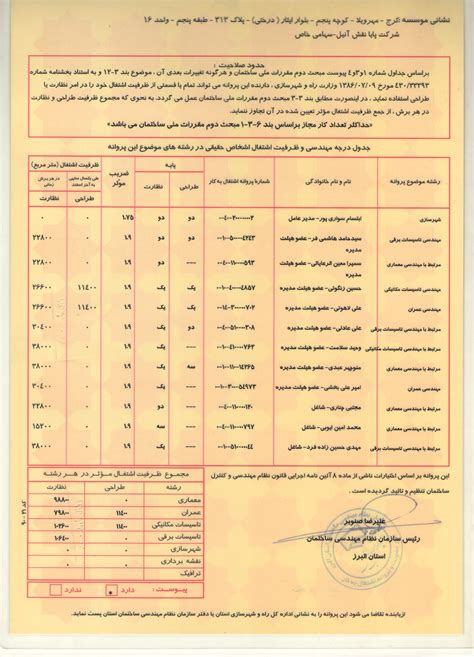 نشانی موسسه: کرج - مهرویلا - کوچه پنجم - بلوار ایثار ( درختی) - پلاک ۳۱۲ - طبقه پنجم - واحد ۱۶
شرکت پایا نقش آنیل-سهامی خاص
حدود صلاحیت :
براساس جداول شماره ۱و۲و۴ پیوست مبحث دوم مقررات ملی ساختمان و هرگونه تغییرات بعدی آن ، موضوع بند ۳-۱۲ و به استناد بخشنامه شماره
۴۳۰/۳۲۳۹۳ مورخ ۱۳۸۶/۰۷/۰۹ وزارت راه و شهرسازی ، دارنده این پروانه می تواند تمام یا قسمتی از ظرفیت اشتغال خود را در امر نظارت یا
طراحی استفاده نماید . در اینصورت مطابق بند ۳-۳ مبحث دوم مقررات ملی ساختمان عمل می گردد. به نحوی که مجموع ظرفیت طراحی و نظارت
در هر برش ، از جمع ظرفیت اشتغال مؤثر تعیین شده در آن تجاوز ننماید.
«حداکثر تعداد کار مجاز براساس بند ۶-۳-۱ مبحث دوم مقررات ملی ساختمان می باشد»
جدول درجه مهندسی و ظرفیت اشتغال اشخاص حقیقی در رشته های موضوع این پروانه
رشته موضوع پروانه نام و نام خانوادگی شماره پروانه اشتغال به کار پایه ضریب موثر ظرفیت اشتغال (متر مربع)
نظارت طراحی طی یکسال منتهی به آخر اسفند در هر برش زمانی
نظارت طراحی
شهرسازی ابتسام سواری پور- مدیر عامل دو دو ۱.۷۵ ۰ ۰
مهندسی تاسیسات برقی سیدحامد هاشمی فر- عضو هیئت مدیره دو دو ۱.۹ ۰ ۲۲۸۰۰
مرتبط با مهندسی معماری سمیرا معین الرعایائی- عضو هیئت مدیره --- دو ۱.۹ ۰ ۲۲۸۰۰
مهندسی تاسیسات مکانیکی حسین زنگوئی- عضو هیئت مدیره یک یک ۱.۹ ۱۱۴۰۰ ۲۶۶۰۰
مهندسی عمران علی لاهوتی- عضو هیئت مدیره یک یک ۱.۹ ۱۱۴۰۰ ۲۶۶۰۰
مرتبط با مهندسی تاسیسات برقی علی عادلی- عضو هیئت مدیره دو یک ۱.۹ ۰ ۳۰۴۰۰
مرتبط با مهندسی تاسیسات مکانیکی وحید سلامت- عضو هیئت مدیره --- یک ۱.۹ ۰ ۳۸۰۰۰
مرتبط با مهندسی معماری منوچهر عبدی- عضو هیئت مدیره سه یک ۱.۹ ۰ ۳۸۰۰۰
مهندسی عمران امیر علی بخشی- عضو هیئت مدیره --- یک ۱.۹ ۰ ۳۰۴۰۰
مرتبط با مهندسی عمران مجتبی چناری- شاغل --- دو ۱.۹ ۰ ۲۲۸۰۰
مرتبط با مهندسی تاسیسات برقی محمد امین ایوبی- شاغل --- سه ۱.۹ ۰ ۱۵۲۰۰
مرتبط با مهندسی تاسیسات مکانیکی مهدی حسین زاده فرد- شاغل --- یک ۱.۹ ۰ ۳۸۰۰۰
این پروانه بر اساس اختیارات ناشی از ماده ۸ آئین نامه اجرایی قانون نظام مهندسی و کنترل
ساختمان تنظیم و تائید گردیده است .
علیرضا صنوبر
رئیس سازمان نظام مهندسی ساختمان
استان البرز
مجموع ظرفیت اشتغال مـؤثر در هـر رشته
رشته طراحی نظارت
معماری ۰ ۹۸۸۰۰
عمران ۱۱۴۰۰ ۷۹۸۰۰
تاسیسات مکانیکی ۱۱۴۰۰ ۱۰۲۶۰۰
تاسیسات برقی ۰ ۱۰۶۴۰۰
شهرسازی ۰ ۰
نقشه برداری ۰ ۰
ترافیک
پیوسـت : دارد ندارد
ازیابنده تقاضا می شود این پروانه را به نشانی اداره کل راه و شهرسازی استان یا دفتر سازمان نظام مهندسی ساختمان استان پست نماید.